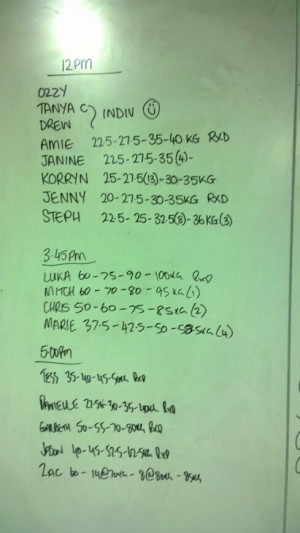 12PM
OZZY
TANYA C } INDIV ☺
DREW
AMIE 22.5-27.5-35-40KG RXD
JANINE 22.5-27.5-35(4)-
KORRYN 25-27.5(13)-30-35KG
JENNY 20-27.5-30-35KG RXD
STEPH 22.5-25-32.5(8)-36KG(3)
3.45pm
LUKA 60-75-90-100KG RxD
MITCH 60-70-80-95KG(1)
CHRIS 50-60-75-85KG(2)
MARIE 37.5-42.5-50-KG(4)
5:00pm
TESS 35-40-45-50KG RxD
DANIELLE 27.5-30-35-40KG RxD
GARRETH 50-55-70-80KG RxD
40-45-52.5-62.5KG RxD
ZAC 60-14@70KG-8@80KG-85KG